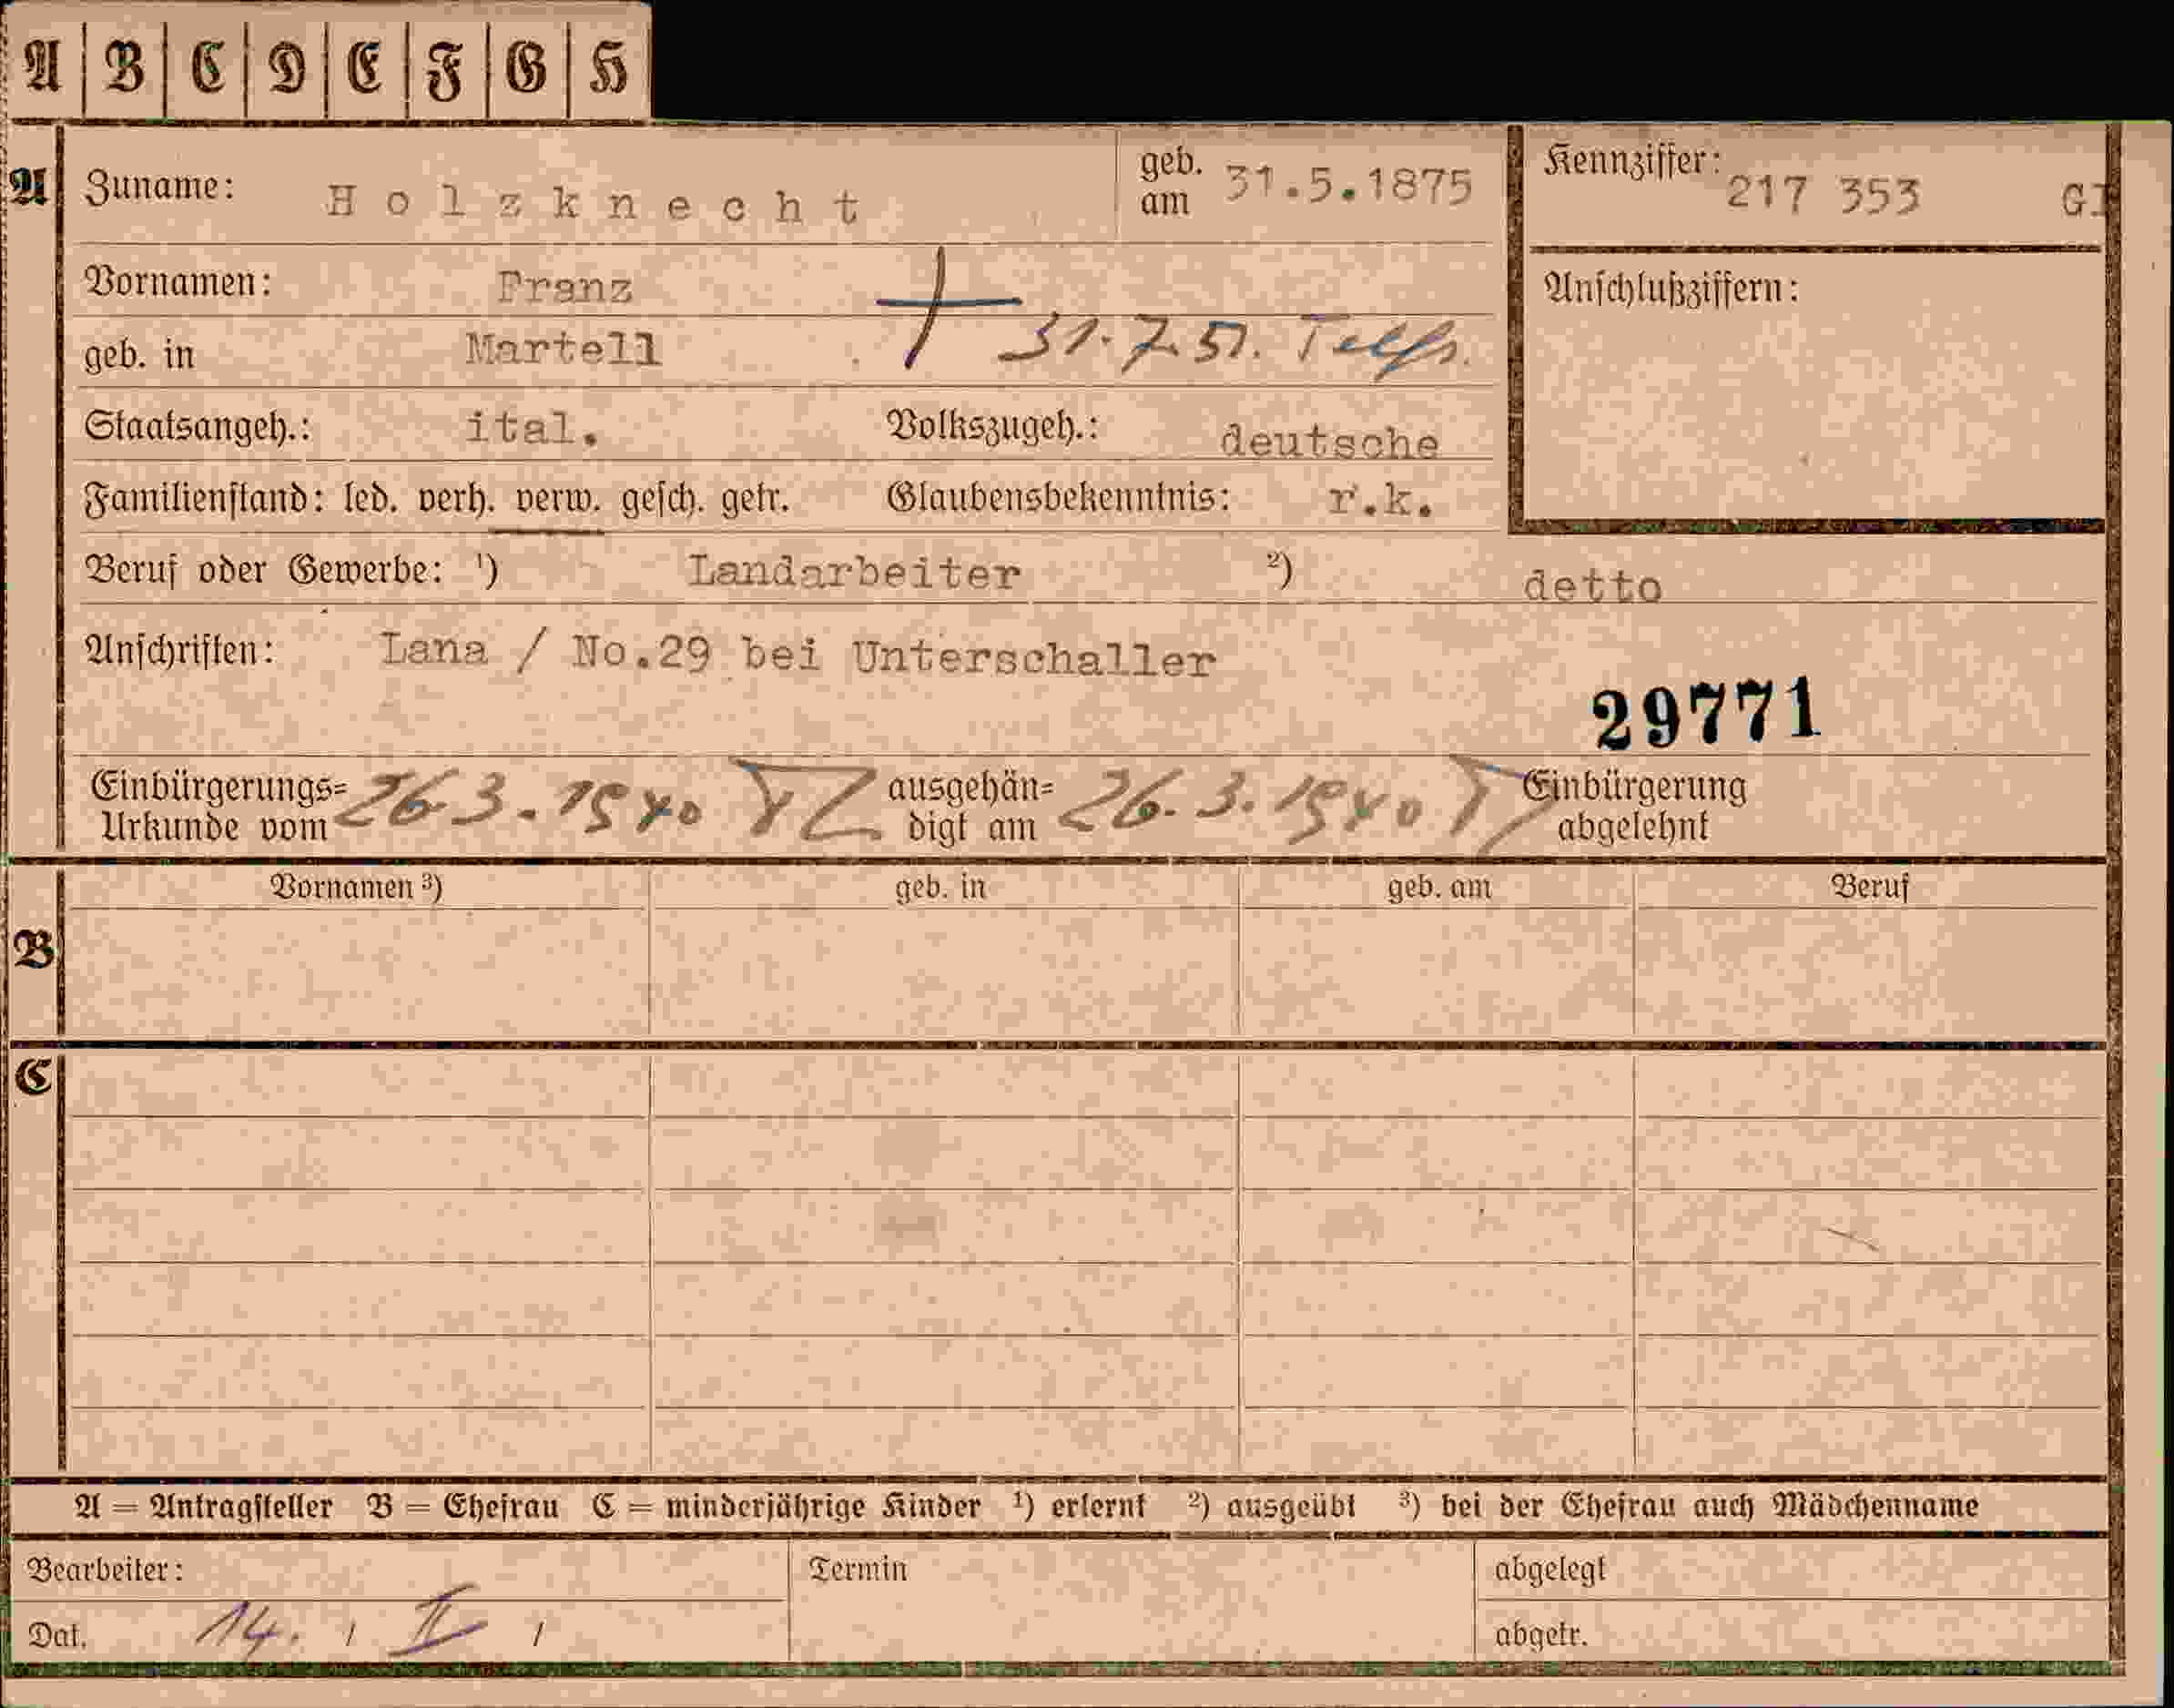 A B C D E F G H
A Zuname: Holzknecht geb. am 31.5.1875 Kennziffer: 217 353 GI
Vornamen: Franz Anschlußziffern:
geb. in Martell + 31.7.51. Telfs.
Staatsangeh.: ital. Volkszugeh.: deutsche
Familienstand: led. verh. verw. gesch. getr. Glaubensbekenntnis: r.k.
Beruf oder Gewerbe: ¹) Landarbeiter ²) detto
Anschriften: Lana / No.29 bei Unterschaller
29771
Einbürgerungs= Urkunde vom 26.3.1940 ausgehän= digt am 26.3.1940 Einbürgerung abgelehnt
Vornamen ³) geb. in geb. am Beruf
B
C
A = Antragsteller B = Ehefrau C = minderjährige Kinder ¹) erlernt ²) ausgeübt ³) bei der Ehefrau auch Mädchenname
Bearbeiter: Termin abgelegt
Dat. 14. / II / abgetr.